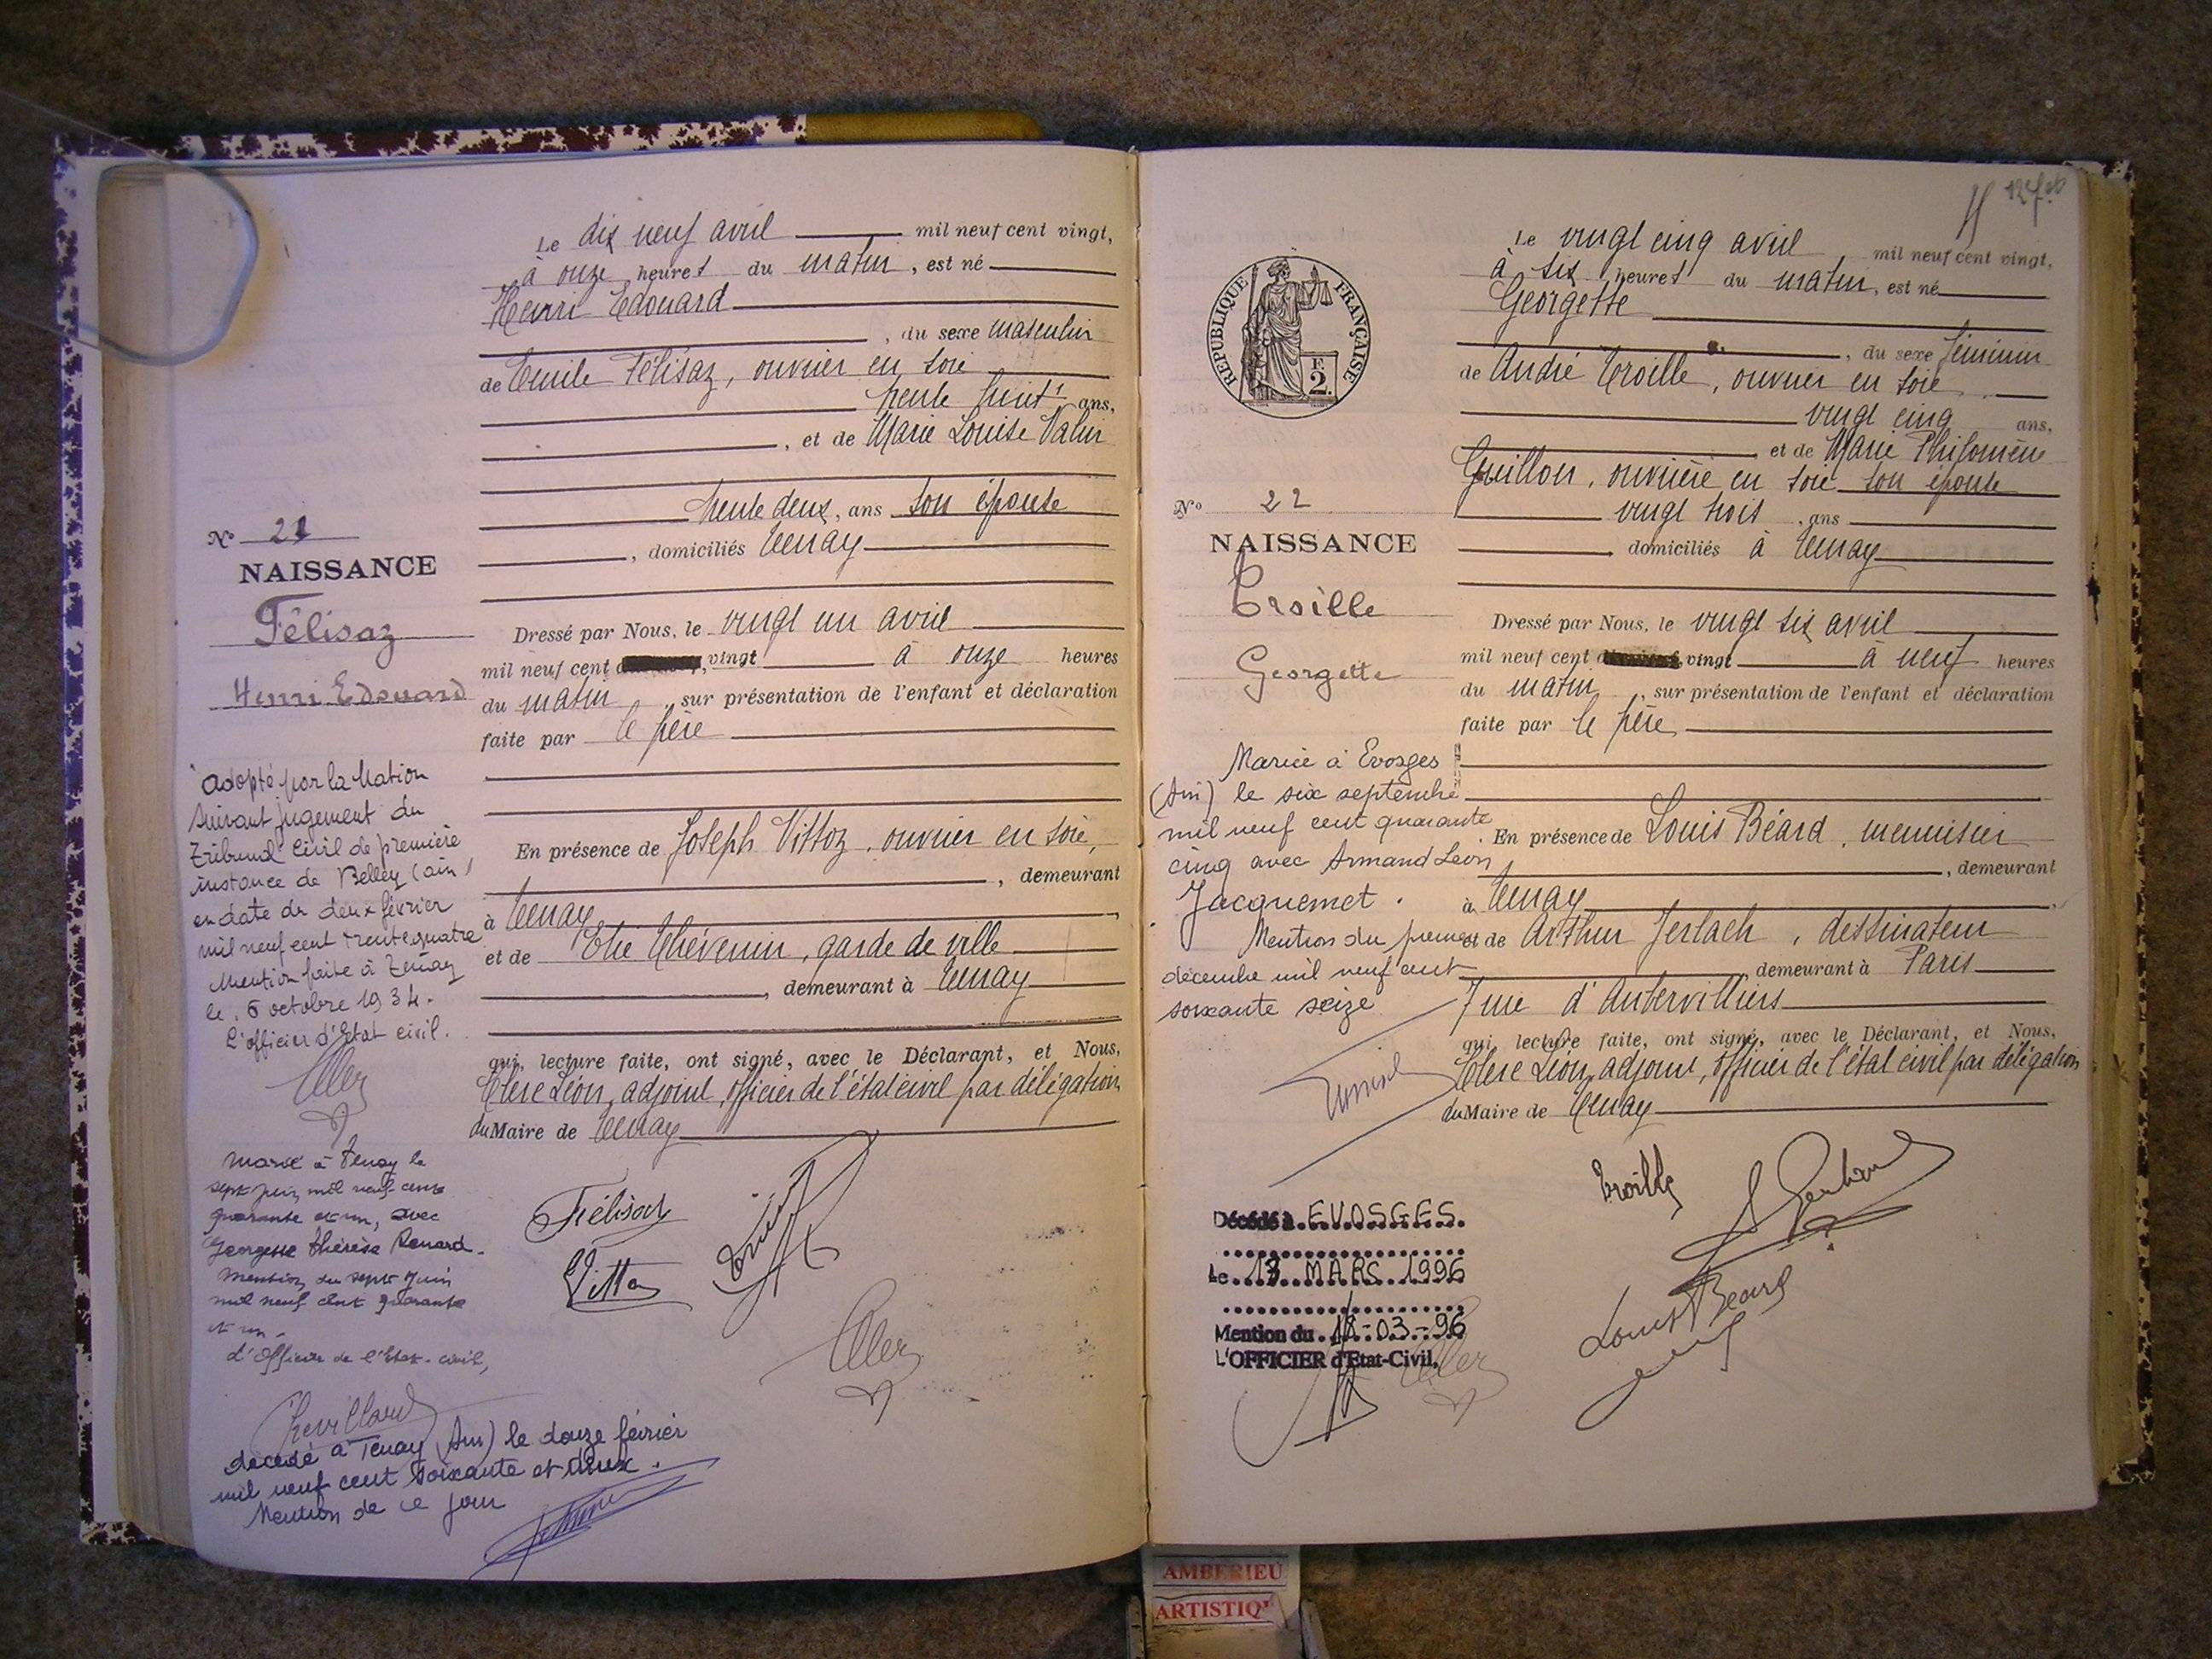 Le dix neuf avril mil neuf cent vingt,
à onze heures du matin, est né
Henri Edouard
, du sexe masculin
de Emile Félisaz, ouvrier en soie
trente huit ans,
, et de Marie Louise Valin
trente deux, ans son épouse
, domiciliés Tenay
No 21
NAISSANCE
Félisaz
Henri Edouard
Dressé par Nous, le vingt un avril
mil neuf cent vingt à onze heures
du matin, sur présentation de l'enfant et déclaration
faite par le père
En présence de Joseph Vittoz, ouvrier en soie,
, demeurant
à Tenay
et de Elie Thévenin, garde de ville
, demeurant à Tenay
qui, lecture faite, ont signé, avec le Déclarant, et Nous,
Clerc Léon, adjoint, officier de l'état civil par délégation
du Maire de Tenay
adopté par la Nation
suivant jugement du
Tribunal civil de première
instance de Belley (ain)
en date du deux février
mil neuf cent trente quatre
Mention faite à Tenay
le 6 octobre 1934.
L'officier d'Etat civil.
Marié à Tenay le
sept juin mil neuf cent
quarante et un, avec
Georgette Thérèse Renard.
Mention du sept juin
mil neuf cent quarante
et un.
L'Officier de l'Etat-civil,
Chevillard
décédé à Tenay (Ain) le douze février
mil neuf cent soixante et deux.
Mention de ce jour
Félisaz
Vittoz
127
Le vingt cinq avril mil neuf cent vingt,
à six heures du matin, est né
Georgette
, du sexe féminin
de André Troille, ouvrier en soie
vingt cinq ans,
et de Marie Philomène
Guillon, ouvrière en soie son épouse
vingt trois, ans
domiciliés à Tenay
REPUBLIQUE FRANÇAISE
F.
2.
No 22
NAISSANCE
Troille
Georgette
Dressé par Nous, le vingt six avril
mil neuf cent vingt à neuf heures
du matin, sur présentation de l'enfant et déclaration
faite par le père
En présence de Louis Béard, menuisier
, demeurant
à Tenay
et de Arthur Gerlach, dessinateur
demeurant à Paris
7 rue d'Aubervilliers
qui, lecture faite, ont signé, avec le Déclarant, et Nous,
Clerc Léon, adjoint, officier de l'état civil par délégation
du Maire de Tenay
Mariée à Evosges
(Ain) le six septembre
mil neuf cent quarante
cinq avec Armand Léon
Jacquemet.
Mention du premier
décembre mil neuf cent
soixante seize
Décédé à EVOSGES
Le 13 MARS 1996
Mention du 18-03-96
L'OFFICIER d'Etat-Civil,
Troille
Louis Béard
AMBERIEU
ARTISTIQ